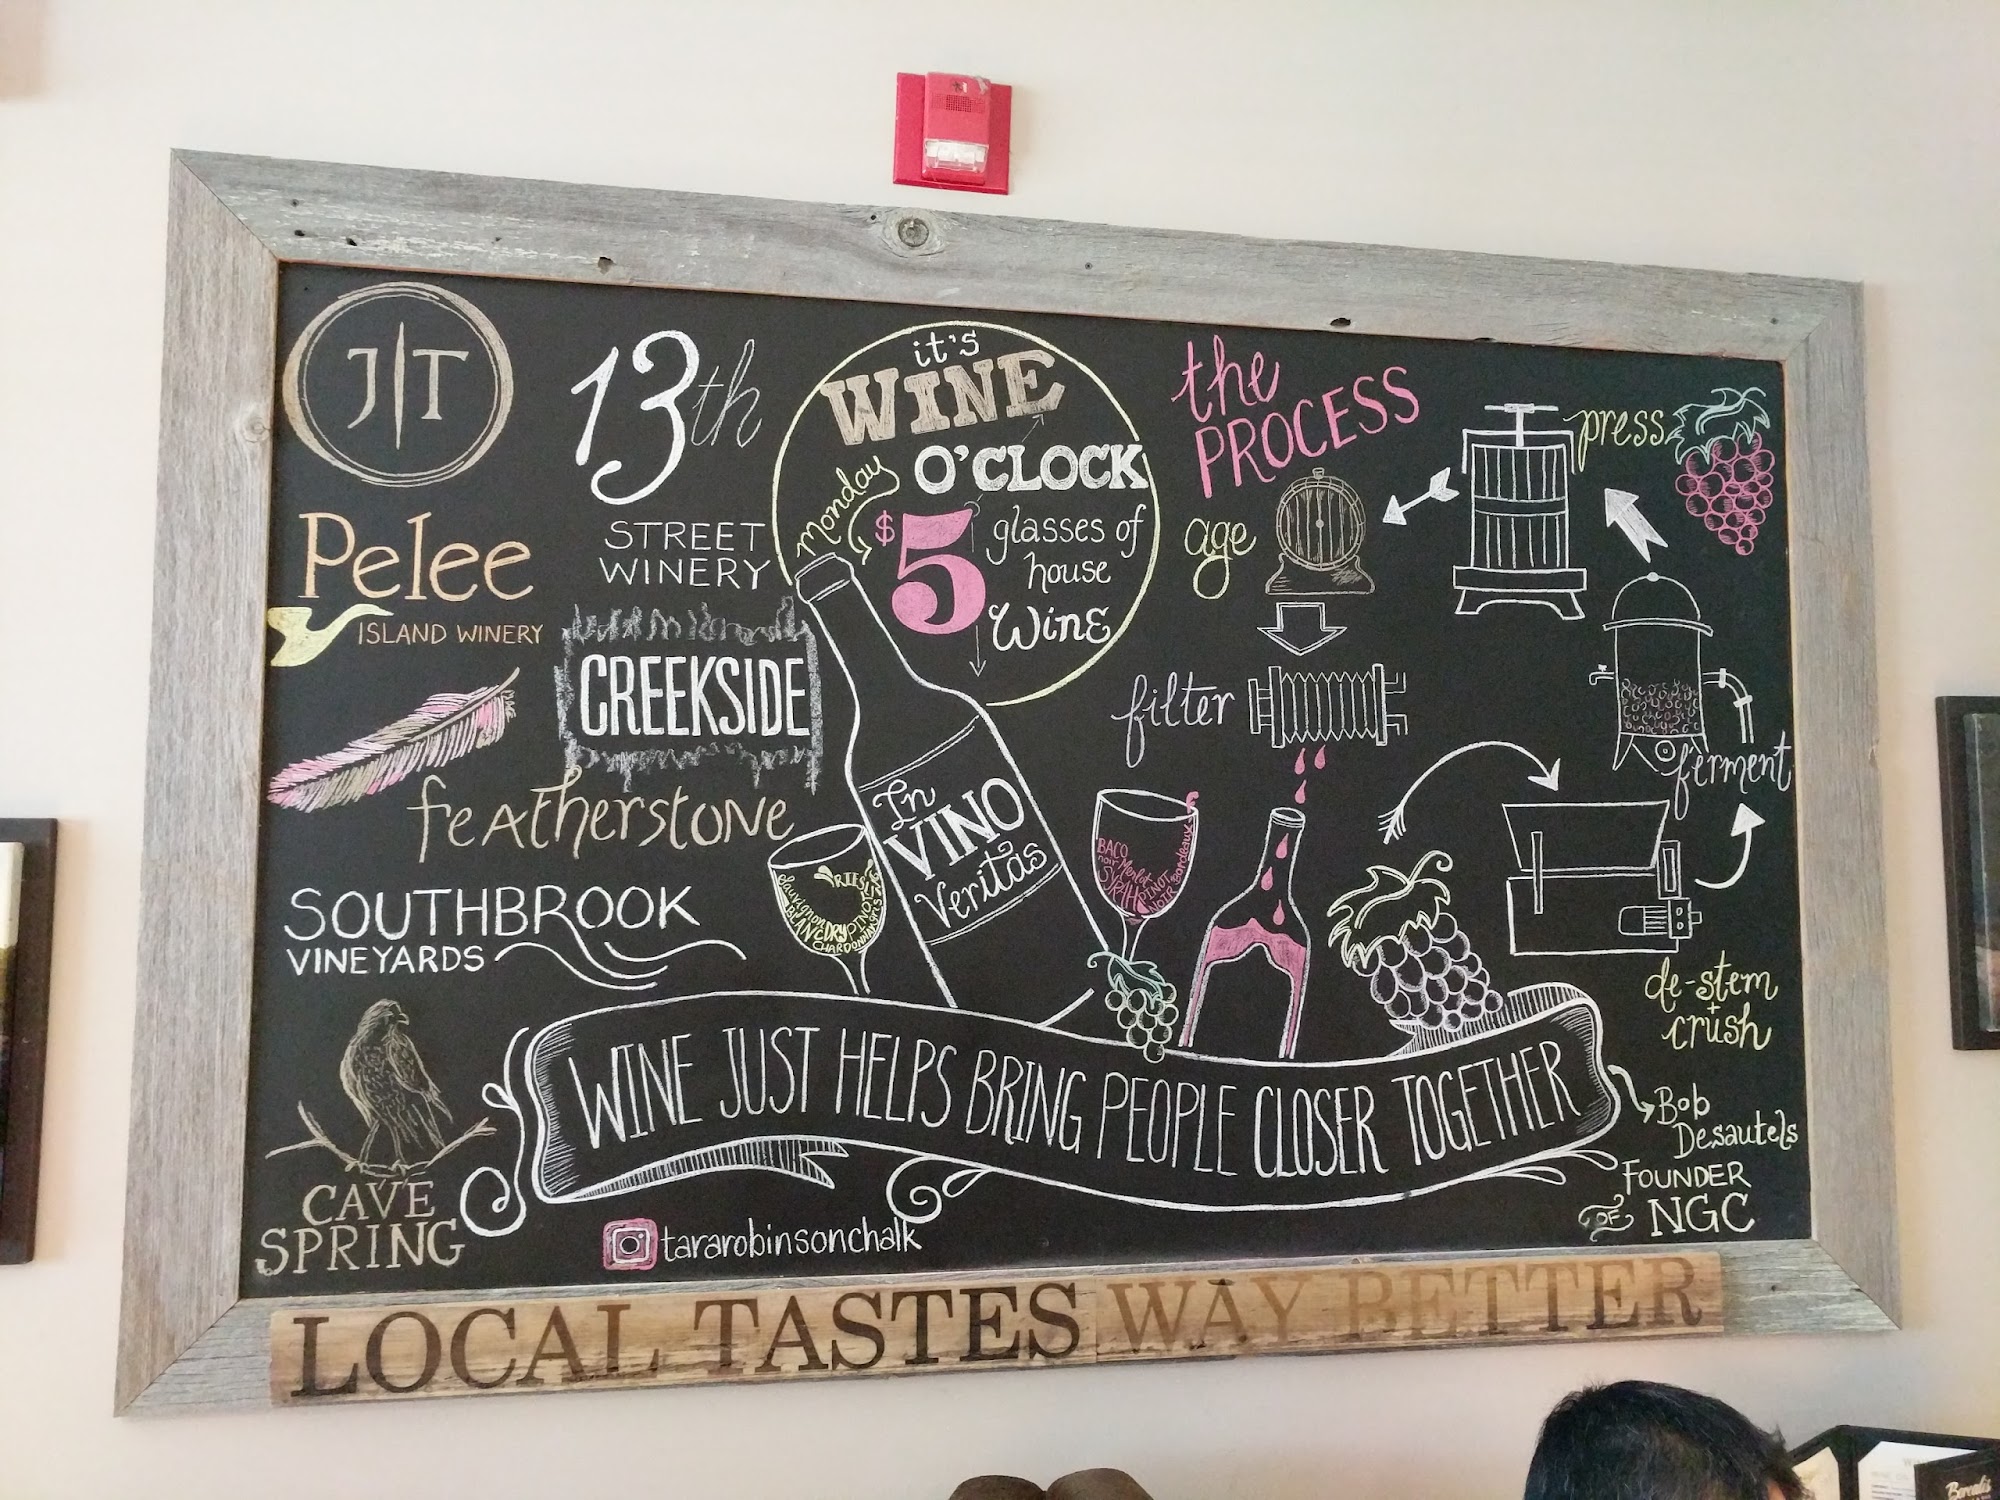 J|T
13th
STREET
WINERY
Pelee
ISLAND WINERY
CREEKSIDE
featherstone
SOUTHBROOK
VINEYARDS
CAVE
SPRING
it's
WINE
O'CLOCK
Monday
$5
glasses of
house
Wine
In
VINO
Veritas
RIESLING
Sauvignon
BLANC
DRY
PINOT
gris
CHARDONNAY
BACO
noir
Merlot
SYRAH
PINOT
NOIR
Bordeaux
the
PROCESS
press
age
filter
ferment
de-stem
+
crush
WINE JUST HELPS BRING PEOPLE CLOSER TOGETHER
Bob
Desautels
FOUNDER
OF NGC
tararobinsonchalk
LOCAL TASTES WAY BETTER